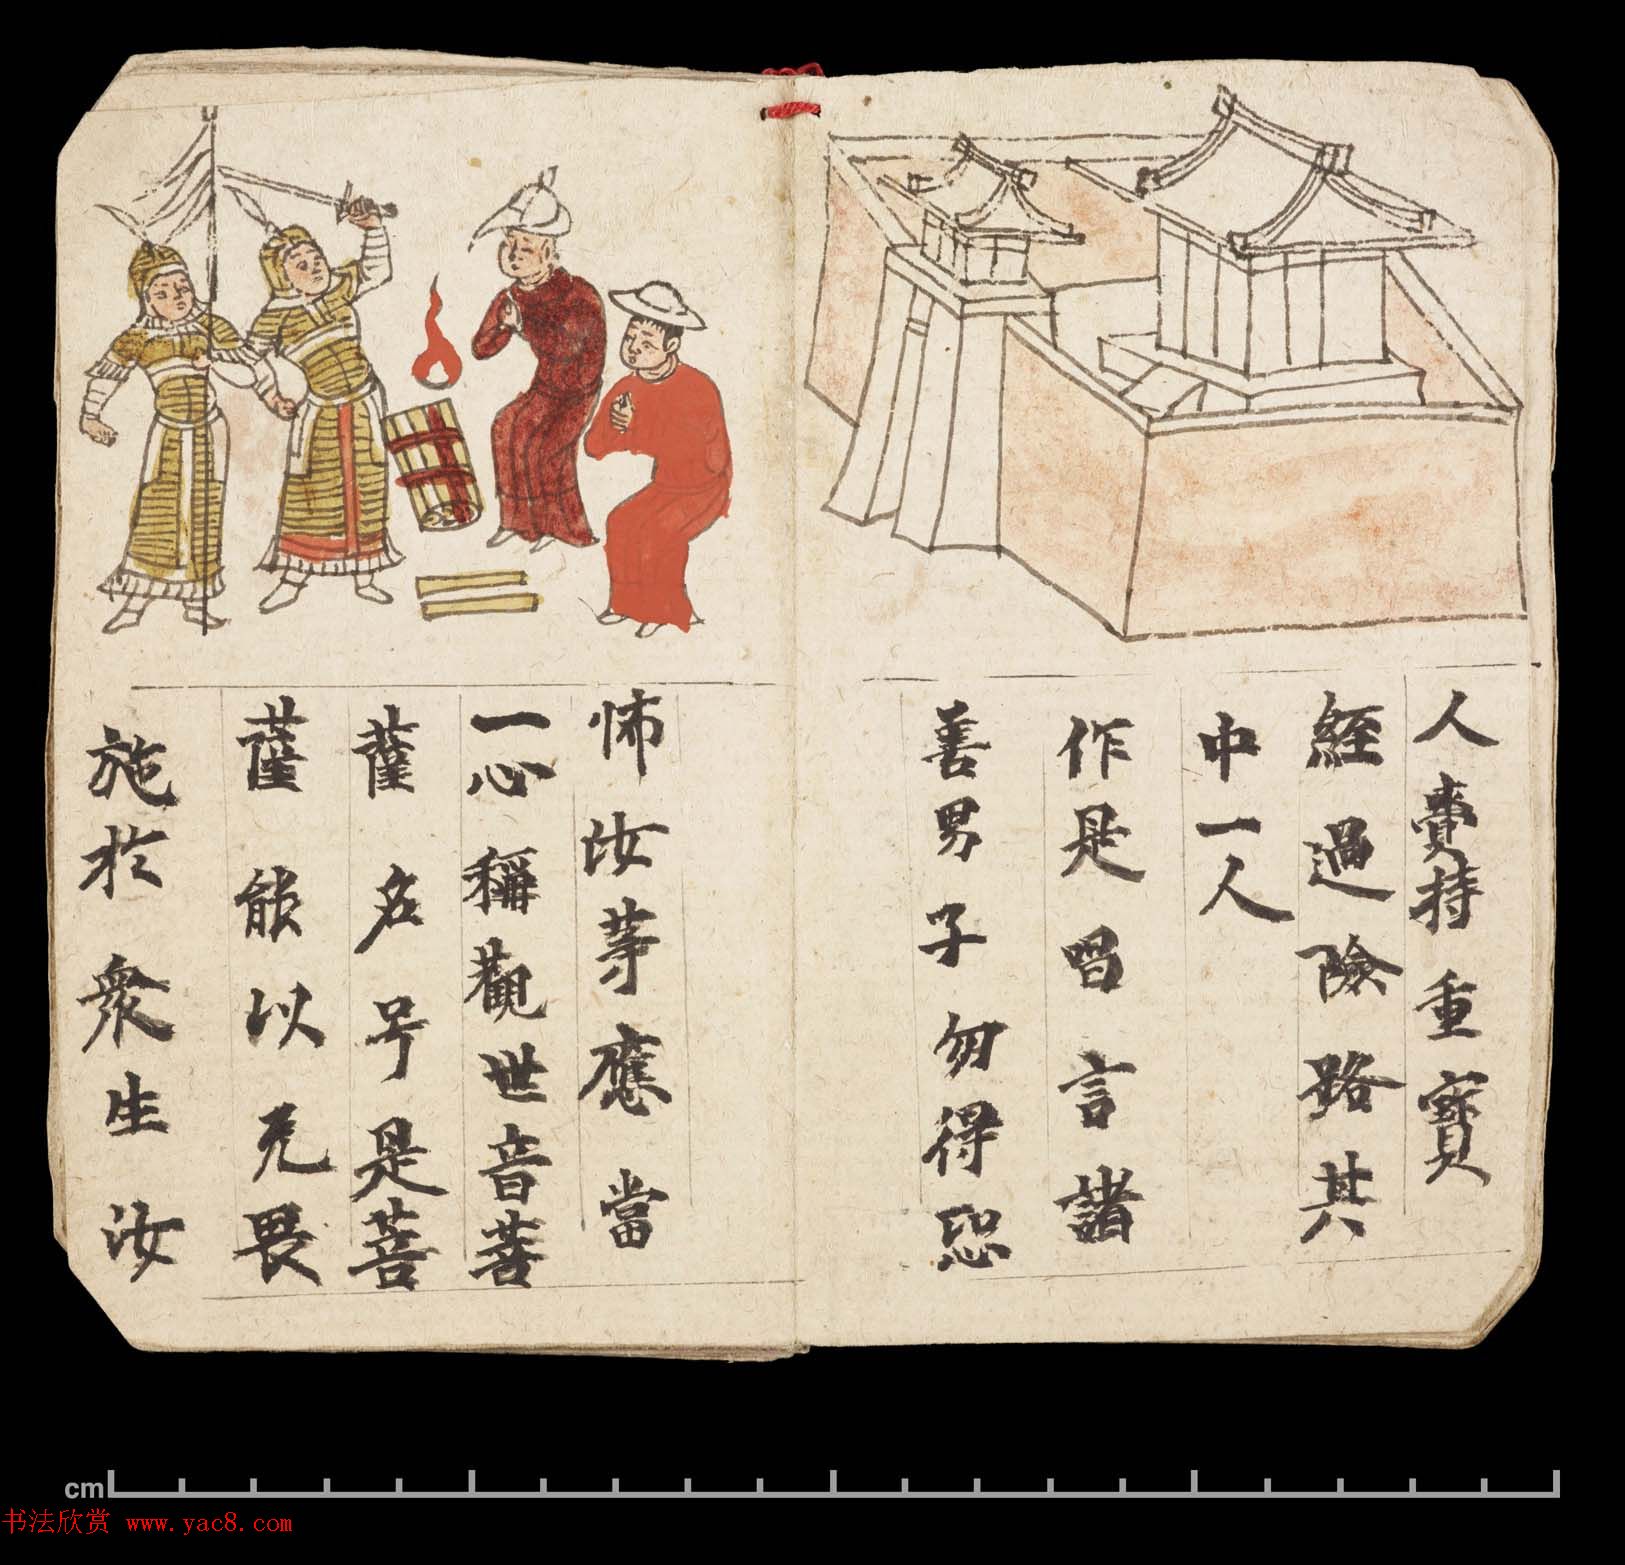 人賷持重寳
經過險路其
中一人
作是唱言諸
善男子勿得恐
怖汝等應當
一心稱觀世音菩
薩名号是菩
薩能以无畏
施於衆生汝
cm
书法欣赏 www.yac8.com